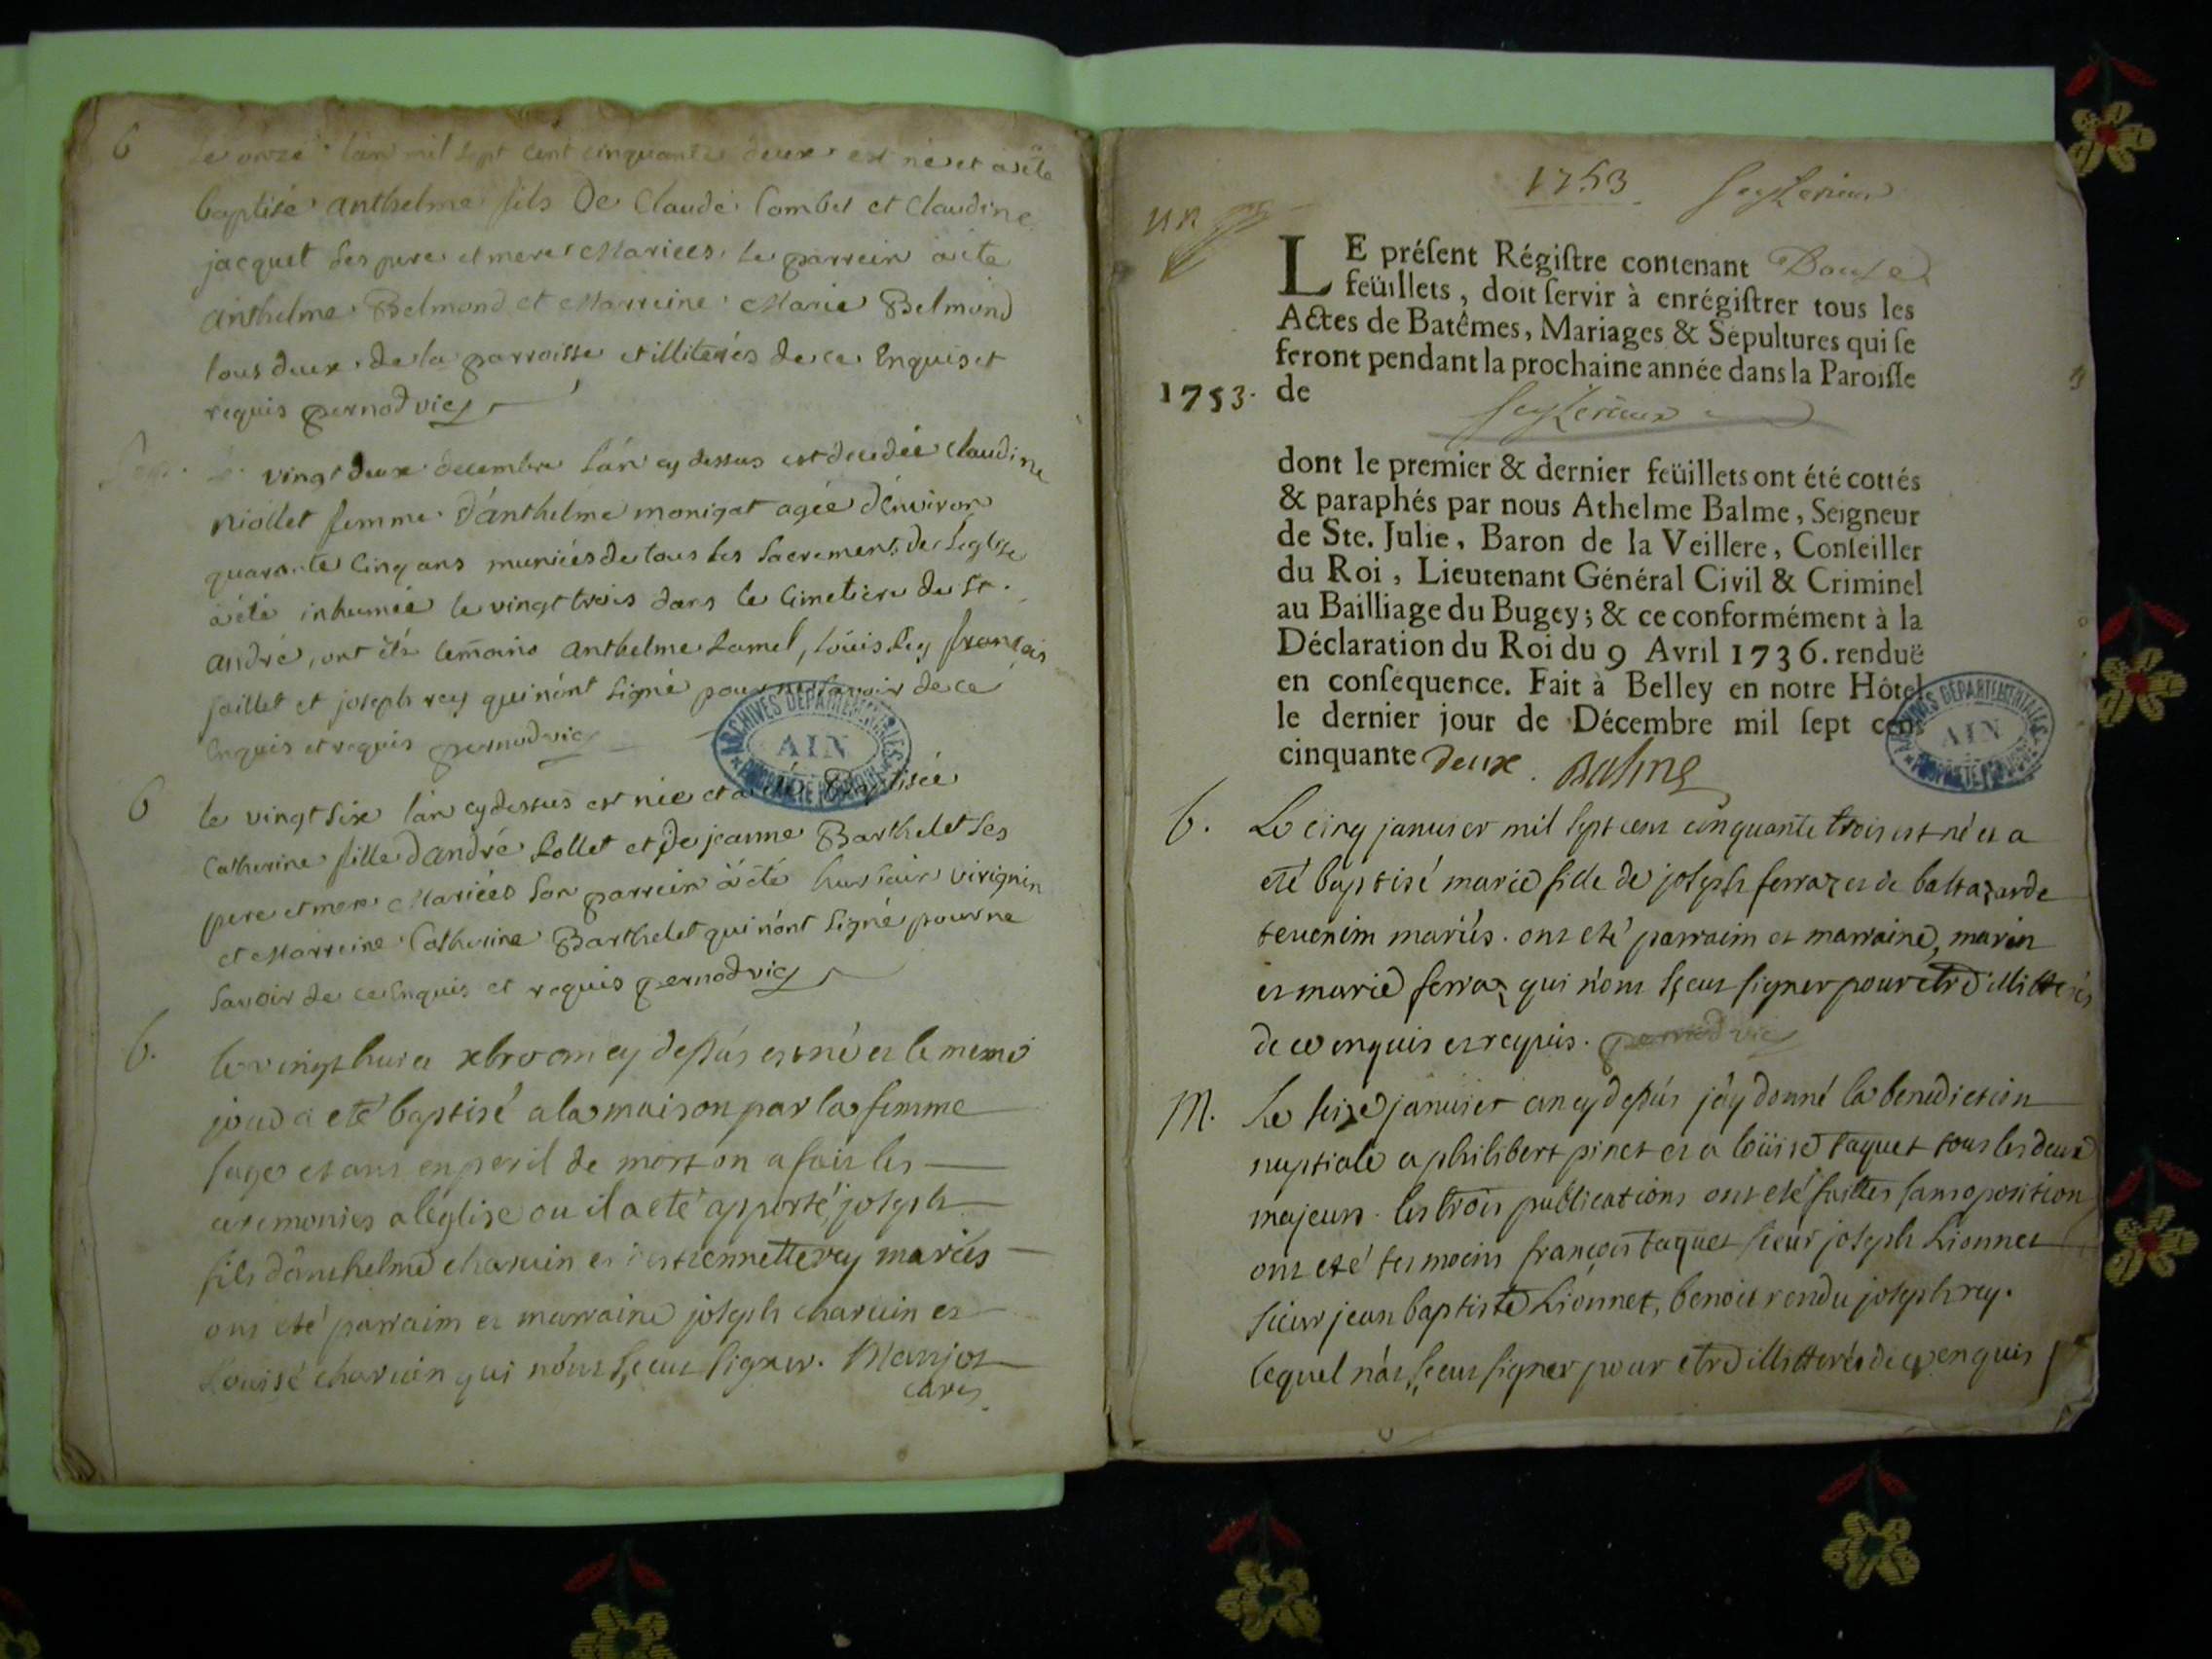 6 Le onze l'an mil sept cent cinquante deux est né et a été
baptisé anthelme fils De Claude Combet et Claudine
jacquet ses pere et mere Mariees. Le parrein a été
anthelme Belmond et Marreine Marie Belmond
tous deux de la parroisse et illiterés de ce Enquis et
requis pernod vic
vingt deux decembre l'an cy dessus est decedée claudine
Niollet femme d'anthelme monigat agée d'environ
quarante Cinq ans muniée de tous les Sacrements de L'eglise
a été inhumée le vingt trois dans le Cimetiere de St.
andré, ont étés temoins anthelme Lamel, Loüis Rey françois
Jaillet et joseph rey qui n'ont Signé pour ne savoir de ce
Enquis et requis pernod vic
ARCHIVES DÉPARTEMENTALES
AIN
6 le vingt six l'an cy dessus est née et a été Baptisée
Catherine fille d'andré Rollet et de jeanne Barthelet ses
pere et mere Mariées Son parrein a été virignin
et Marreine Catherine Barthelet qui n'ont Signé pour ne
Savoir de ce Enquis et requis pernod vic
6. le vingt huit xbre an cy dessus est né et le meme
jour a eté baptisé a la maison par la femme
sage etant en peril de mort on a fait les
ceremonies a l'église ou il a eté apporté, joseph
fils d'anthelme charuin et d'estiennette rey mariés
ont eté parraim et marraine joseph charuin et
Louise charuin qui n'ont sçeut signer. Manjot
curé
1753 Seyzerieux
un
LE préſent Régiſtre contenant Douze
feüillets, doit ſervir à enrégiſtrer tous les
Actes de Batêmes, Mariages & Sépultures qui ſe
feront pendant la prochaine année dans la Paroiſſe
1753. de Seyzerieux
dont le premier & dernier feüillets ont été cottés
& paraphés par nous Athelme Balme, Seigneur
de Ste. Julie, Baron de la Veillere, Conſeiller
du Roi, Lieutenant Général Civil & Criminel
au Bailliage du Bugey; & ce conformément à la
Déclaration du Roi du 9 Avril 1736. renduë
en conſéquence. Fait à Belley en notre Hôtel
le dernier jour de Décembre mil ſept cent
cinquante deux. Balme
ARCHIVES DÉPARTEMENTALES
AIN
6. Le cinq januier mil sept cent cinquante trois est né et a
eté baptisé marie fille de joseph ferraz et de baltazarde
teuenim mariés. ont eté parraim et marraine, marin
et marie ferraz qui n'ont sçeut signer pour etre illitterés
de ce enquis et requis. pernod vic
M. Le seize januier an cy dessus j'ay donné la benediction
nuptiale a philibert pinet et a loüise taquet tous les deux
majeurs. les trois publications ont eté faittes sans oposition
ont eté temoins françois taquet sieur joseph Lionnet
sieur jean baptiste Lionnet, benoit rendu joseph rey.
lequel n'at sçeut signer pour etre illitterés de ce enquis